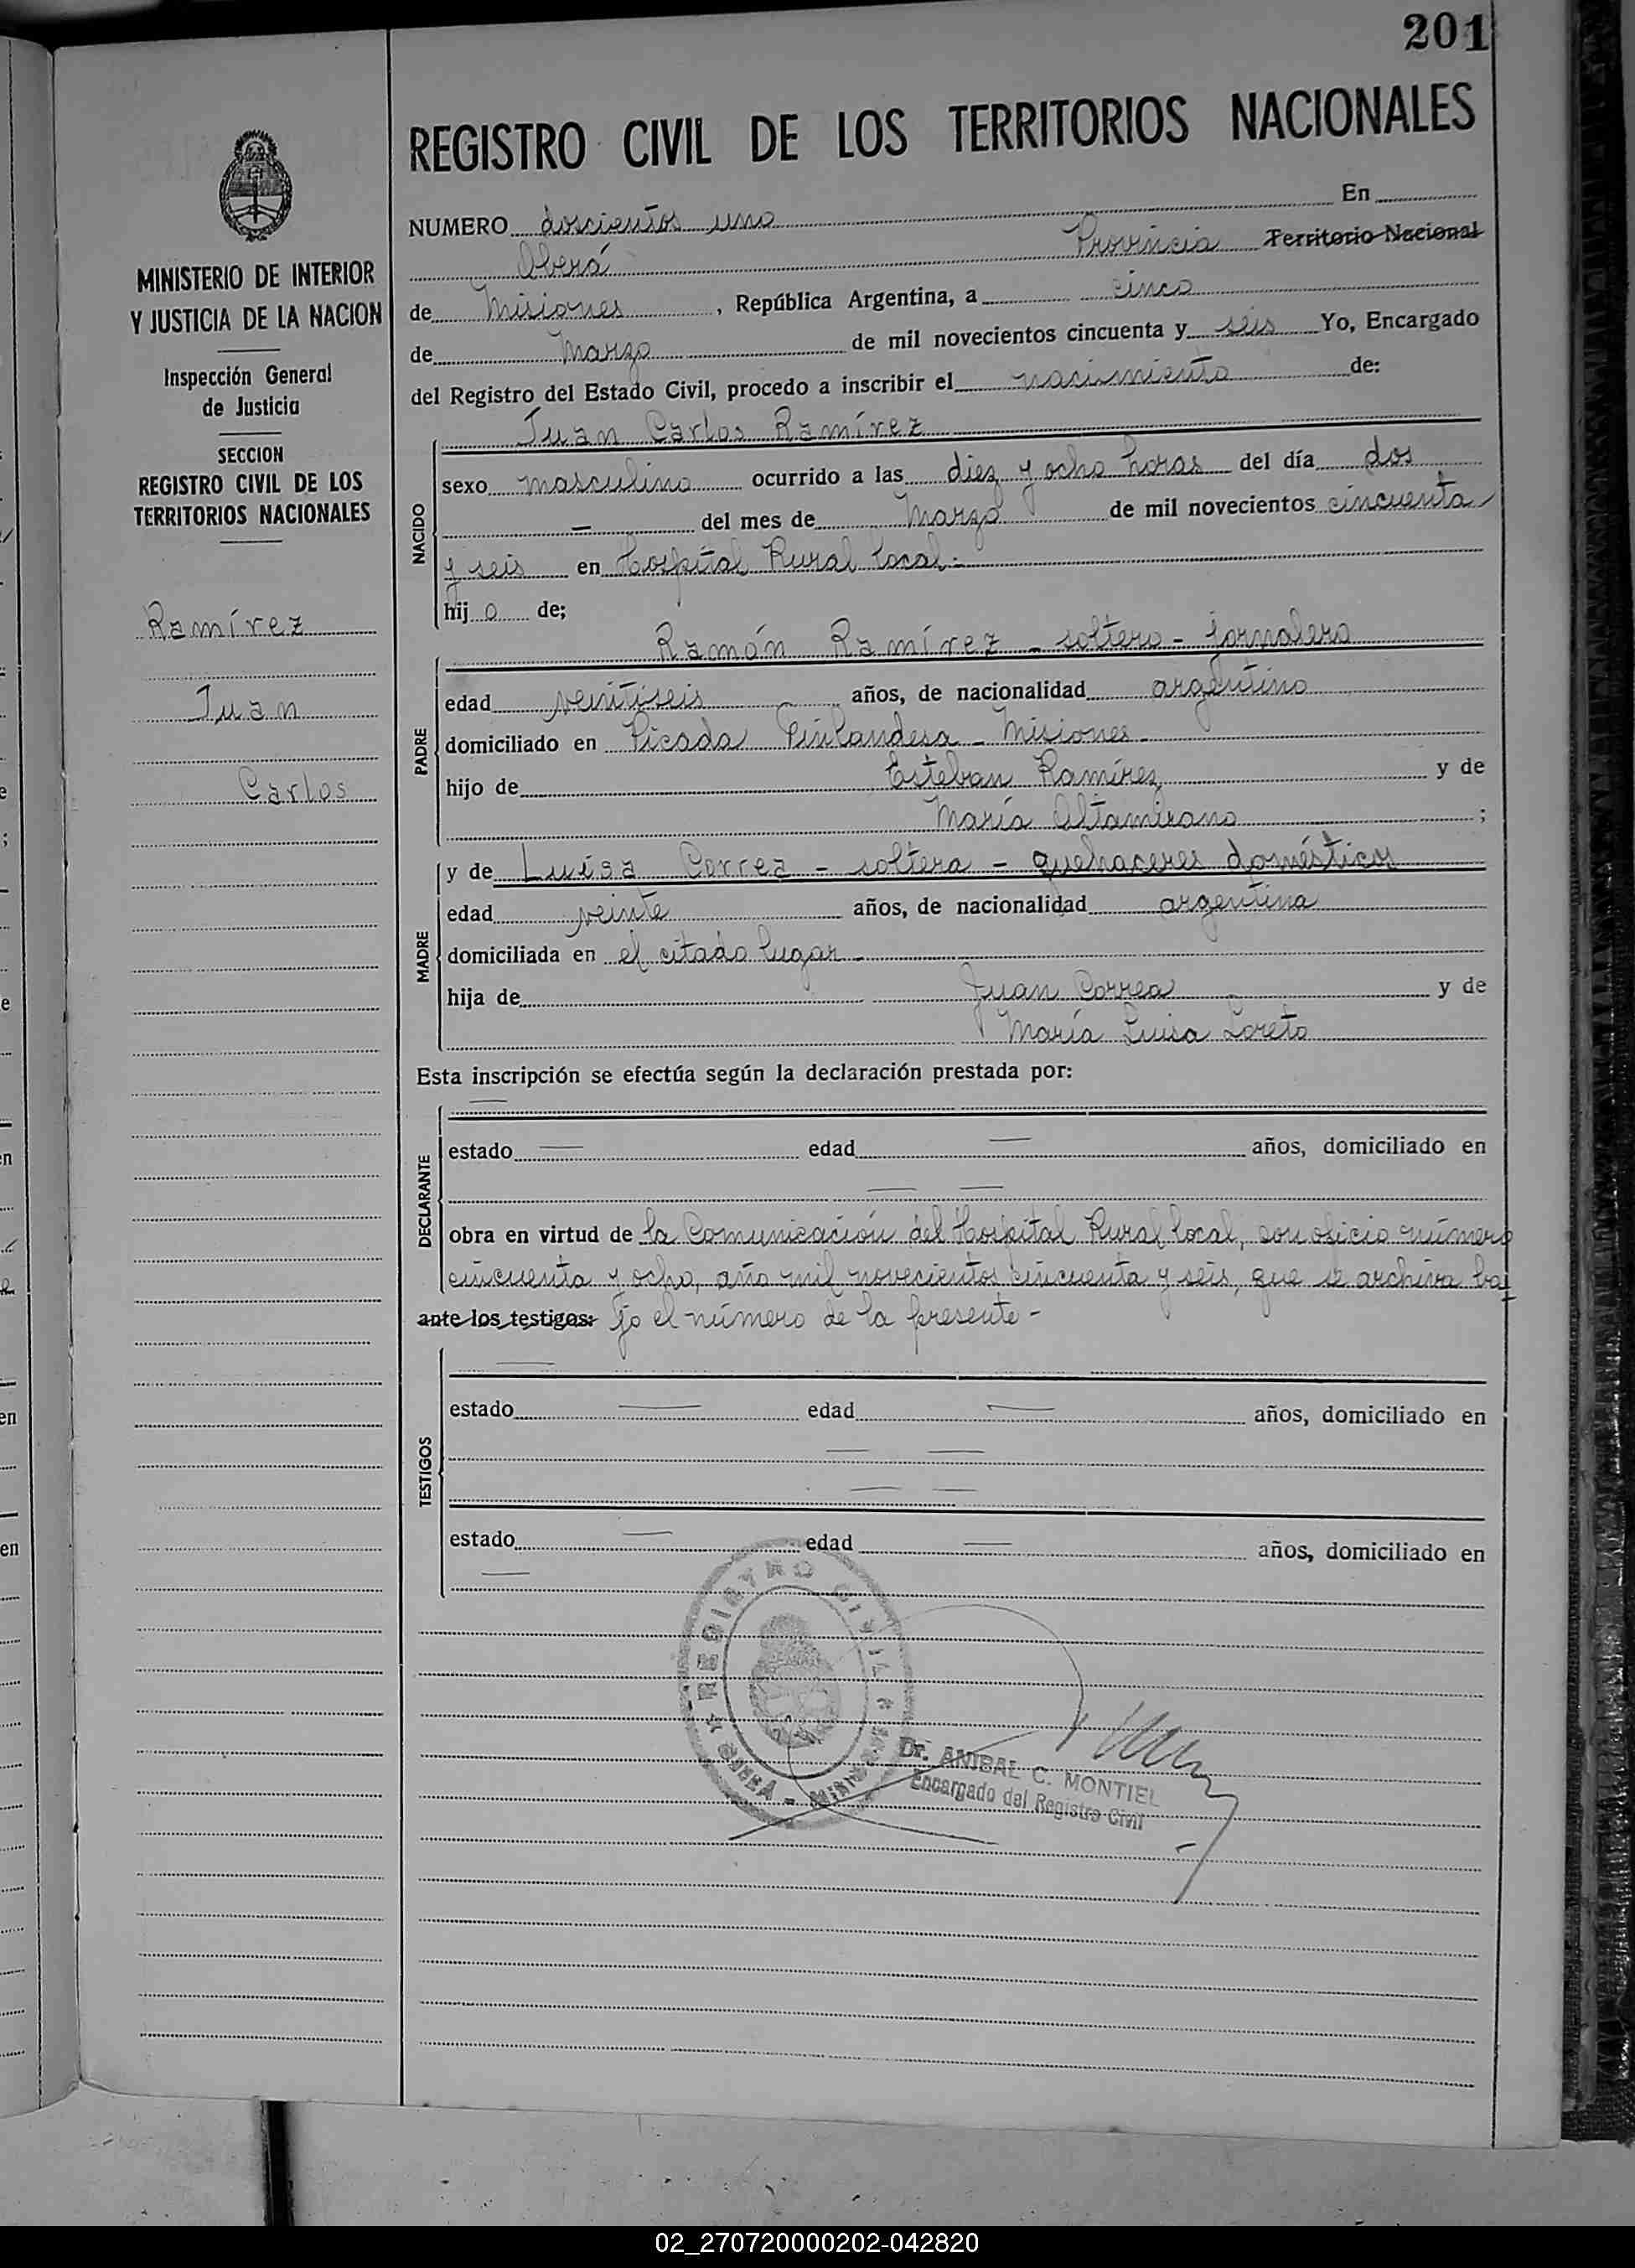 201
REGISTRO CIVIL DE LOS TERRITORIOS NACIONALES
MINISTERIO DE INTERIOR
Y JUSTICIA DE LA NACION
Inspección General
de Justicia
SECCION
REGISTRO CIVIL DE LOS
TERRITORIOS NACIONALES
Ramírez
Juan
Carlos
NUMERO doscientos uno En
Oberá Provincia Territorio Nacional
de Misiones, República Argentina, a cinco
de Marzo de mil novecientos cincuenta y seis Yo, Encargado
del Registro del Estado Civil, procedo a inscribir el nacimiento de:
NACIDO
Juan Carlos Ramírez
sexo masculino ocurrido a las diez y ocho horas del día dos
— del mes de Marzo de mil novecientos cincuenta
y seis en Hospital Rural local.-
hijo de;
PADRE
Ramón Ramírez - soltero - jornalero
edad veintiseis años, de nacionalidad argentino
domiciliado en Picada Finlandesa - Misiones -
hijo de Esteban Ramírez y de
María Altamirano ;
MADRE
y de Luisa Correa - soltera - quehaceres domésticos
edad veinte años, de nacionalidad argentina
domiciliada en el citado lugar -
hija de Juan Correa y de
María Luisa Loreto
Esta inscripción se efectúa según la declaración prestada por:
DECLARANTE
—
estado — edad — años, domiciliado en
— —
obra en virtud de la Comunicación del Hospital Rural local, con oficio número
cincuenta y ocho, año mil novecientos cincuenta y seis, que se archiva ba-
ante los testigos: jo el número de la presente -
TESTIGOS
—
estado — edad — años, domiciliado en
— —
— —
estado — edad — años, domiciliado en
—
REGISTRO CIVIL
OBERA - MISIONES
Dr. ANIBAL C. MONTIEL
Encargado del Registro Civil
02_270720000202-042820